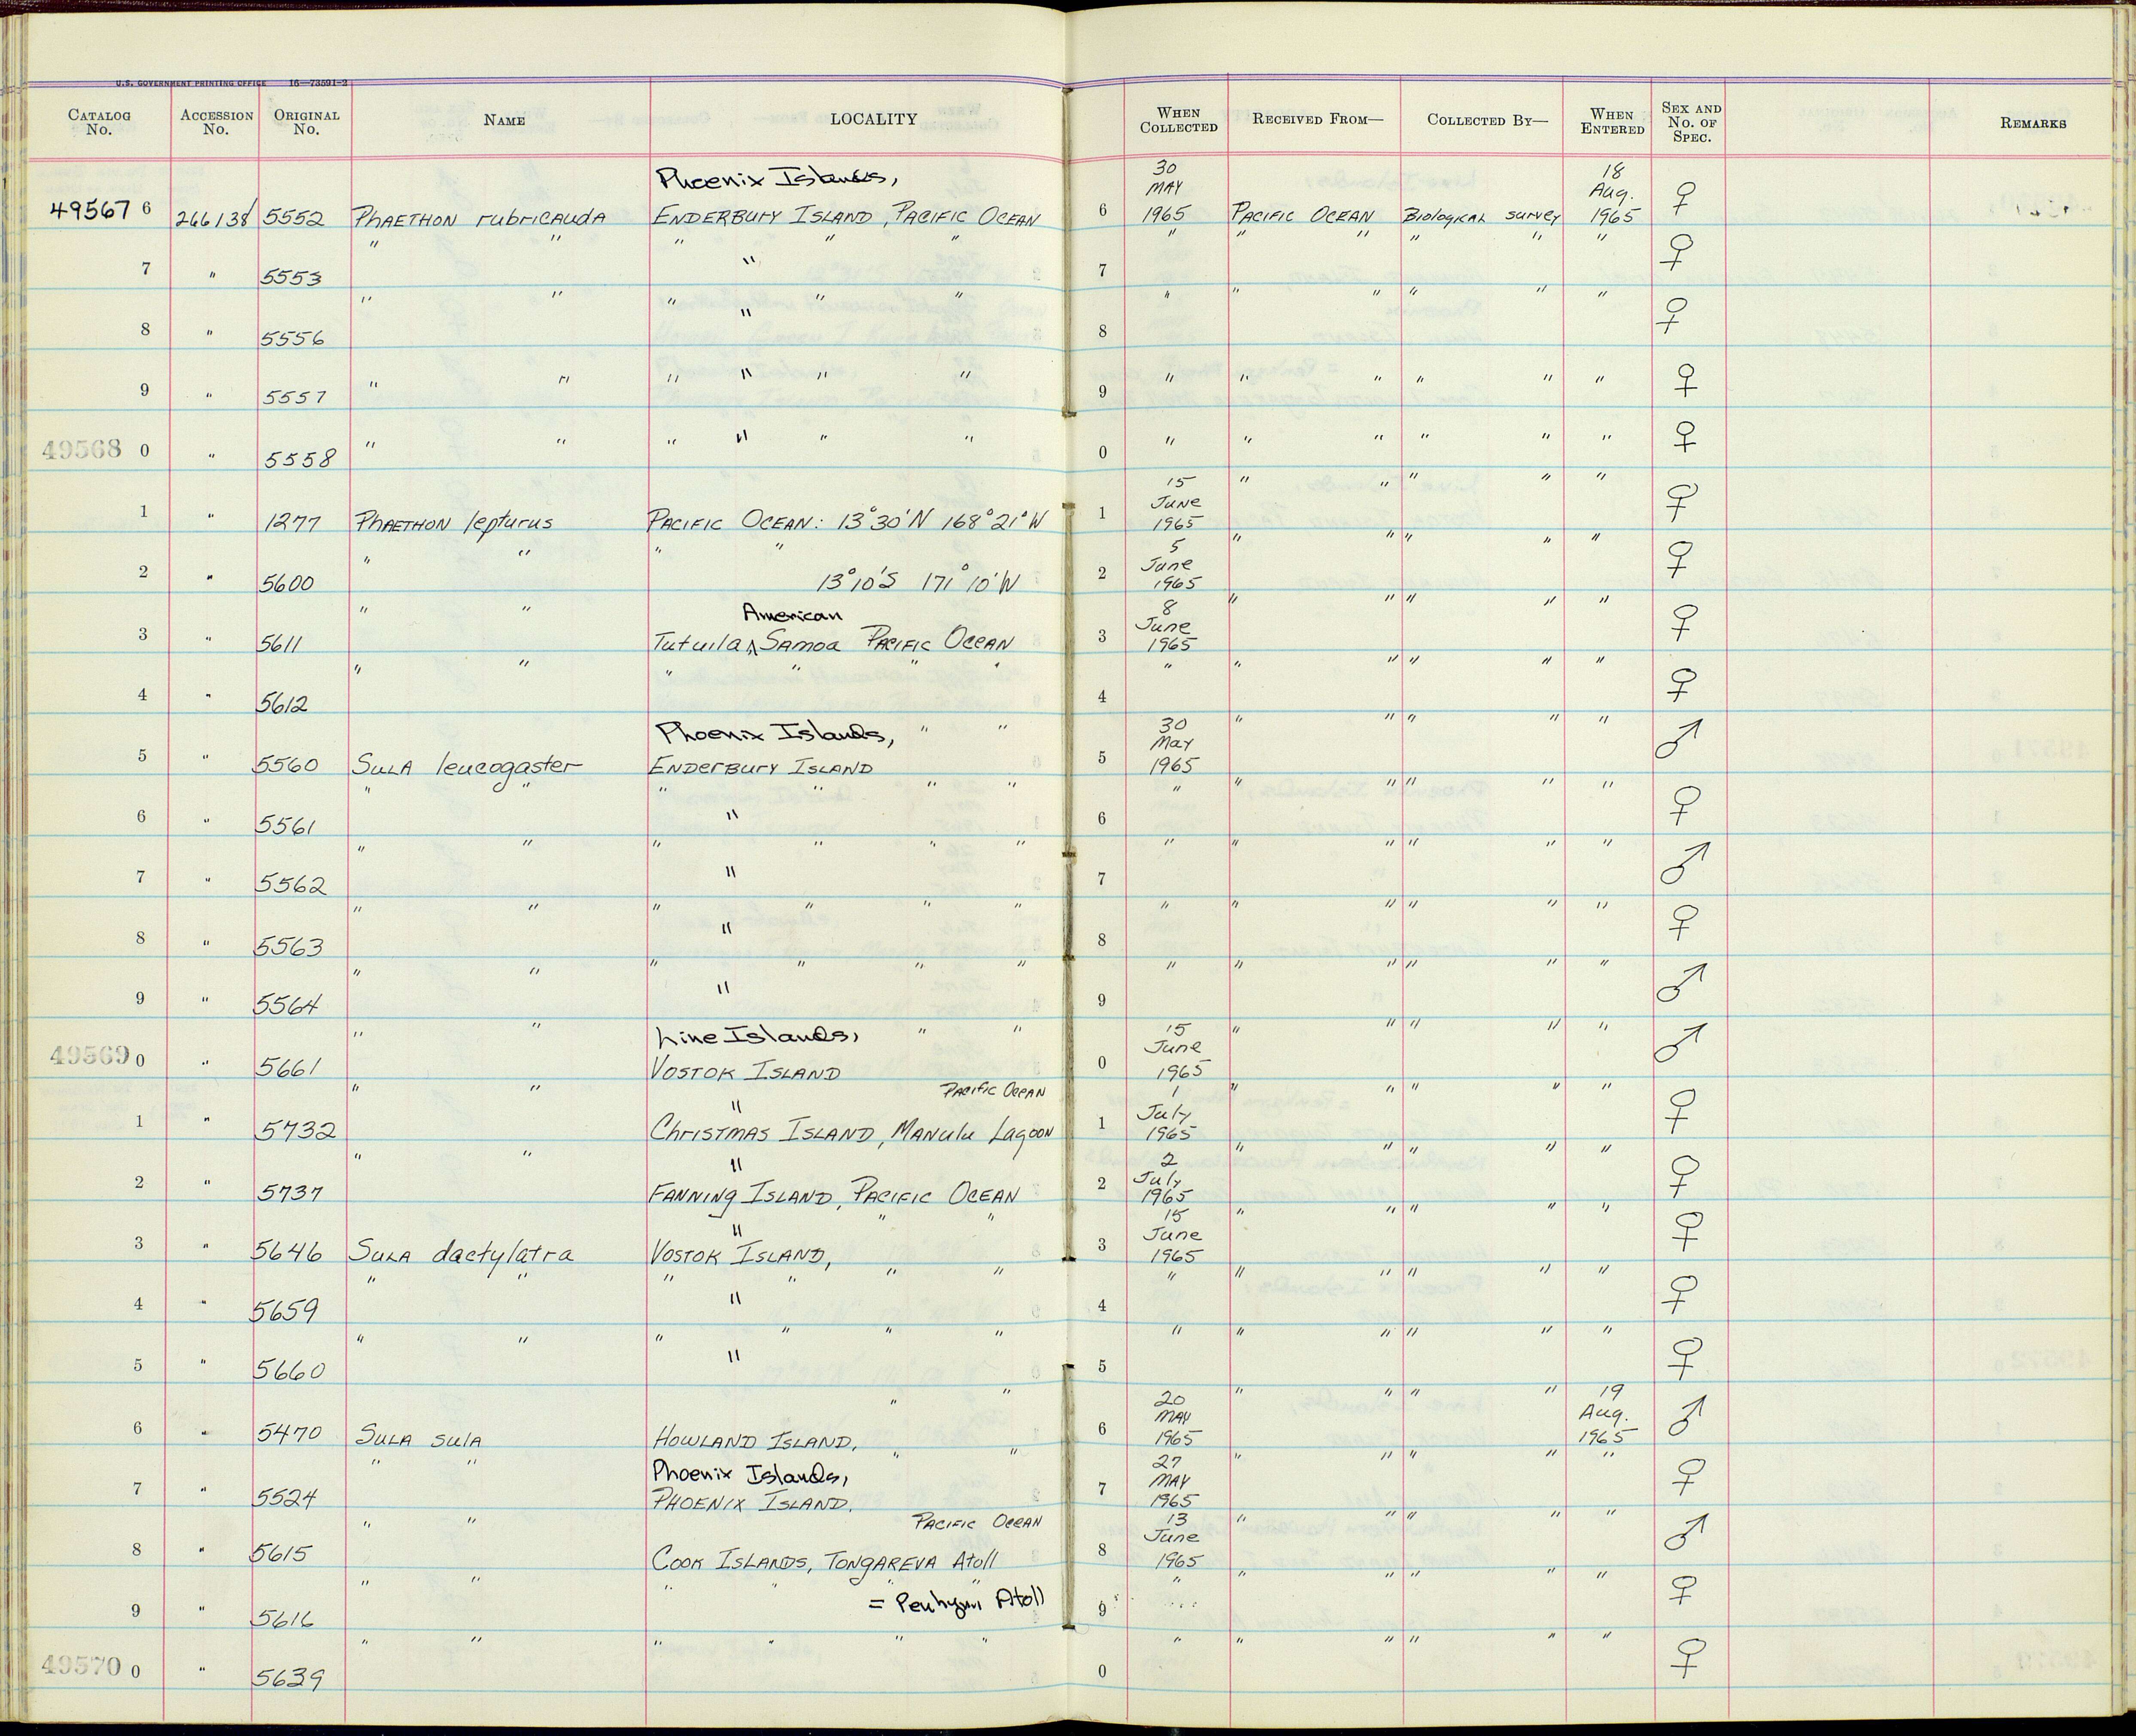 U.S. GOVERNMENT PRINTING OFFICE 16—73591-2
CATALOG No. ACCESSION No. ORIGINAL No. NAME LOCALITY WHEN COLLECTED RECEIVED FROM— COLLECTED BY— WHEN ENTERED SEX AND No. OF SPEC. REMARKS
Phoenix Islands, 30 MAY 18 Aug.
49567 6 266138 5552 PHAETHON rubricauda ENDERBURY ISLAND, PACIFIC OCEAN 6 1965 PACIFIC OCEAN Biological survey 1965 ♀
7 " 5553 " " " " " " 7 " " " " " " ♀
8 " 5556 " " " " " " 8 " " " " " " ♀
9 " 5557 " " " " " " 9 " " " " " " ♀
49568 0 " 5558 " " " " " " 0 " " " " " " ♀
1 " 1277 PHAETHON lepturus PACIFIC OCEAN: 13°30'N 168°21'W 1 15 June 1965 " " " " " ♀
2 " 5600 " " " " 13°10'S 171°10'W 2 5 June 1965 " " " " " ♀
American
3 " 5611 " " Tutuila ^ SAMOA PACIFIC OCEAN 3 8 June 1965 " " " " " ♀
4 " 5612 " " " " " " 4 " " " " " " ♀
Phoenix Islands, " "
5 " 5560 SULA leucogaster ENDERBURY ISLAND 5 30 May 1965 " " " " " ♂
6 " 5561 " " " " " " " 6 " " " " " " ♀
7 " 5562 " " " " " " " 7 " " " " " " ♂
8 " 5563 " " " " " " " 8 " " " " " " ♀
9 " 5564 " " " " " " " 9 " " " " " " ♂
Line Islands, " "
49569 0 " 5661 " " VOSTOK ISLAND 0 15 June 1965 " " " " " ♂
" PACIFIC OCEAN
1 " 5732 " " CHRISTMAS ISLAND, MANULU LAGOON 1 1 July 1965 " " " " " ♀
"
2 " 5737 " " FANNING ISLAND, PACIFIC OCEAN 2 2 July 1965 " " " " " ♀
" " "
3 " 5646 SULA dactylatra VOSTOK ISLAND, 3 15 June 1965 " " " " " ♀
4 " 5659 " " " " " " " 4 " " " " " " ♀
5 " 5660 " " " " " " " 5 " " " " " " ♀
" "
6 " 5470 SULA sula HOWLAND ISLAND, 6 20 MAY 1965 " " " " 19 Aug. 1965 ♂
Phoenix Islands, " "
7 " 5524 " " PHOENIX ISLAND. 7 27 MAY 1965 " " " " " ♀
PACIFIC OCEAN
8 " 5615 " " COOK ISLANDS, TONGAREVA Atoll 8 13 June 1965 " " " " " ♂
" " " "
9 " 5616 " " = Penhyn Atoll 9 " " " " " " ♀
49570 0 " 5639 " " " " " " 0 " " " " " " ♀